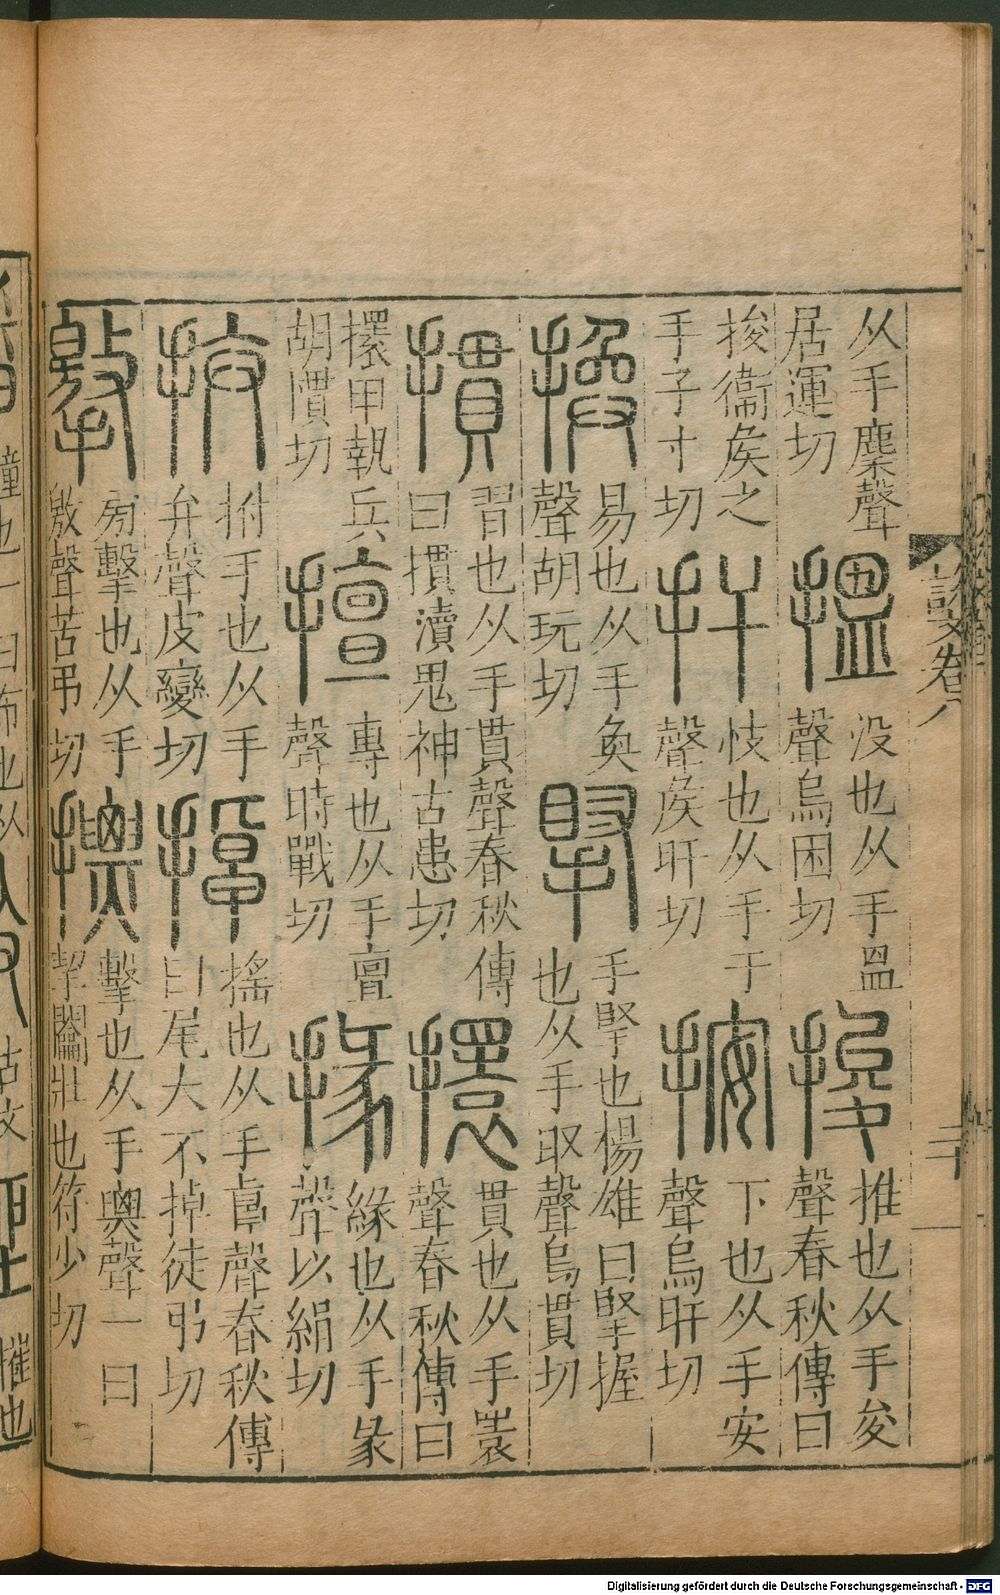 从手麇聲
居運切
搵
没也从手𥁕
聲烏困切
捘
推也从手夋
聲春秋傳曰
捘衞矦之
手子寸切
扞
忮也从手干
聲矦旰切
按
下也从手安
聲烏旰切
換
易也从手奐
聲胡玩切
掔
手掔也楊雄曰掔握
也从手取聲烏貫切
摜
習也从手貫聲春秋傳
曰摜瀆鬼神古患切
擐
貫也从手瞏
聲春秋傳曰
擐甲執兵
胡慣切
擅
專也从手亶
聲時戰切
掾
緣也从手彖
聲以絹切
拚
拊手也从手
弁聲皮變切
掉
搖也从手卓聲春秋傳
曰尾大不掉徒弔切
㩓
㫄擊也从手
敫聲苦弔切
摽
擊也从手票聲一曰
挈闟壯也符少切
說文卷八
二十
Digitalisierung gefördert durch die Deutsche Forschungsgemeinschaft - DFG